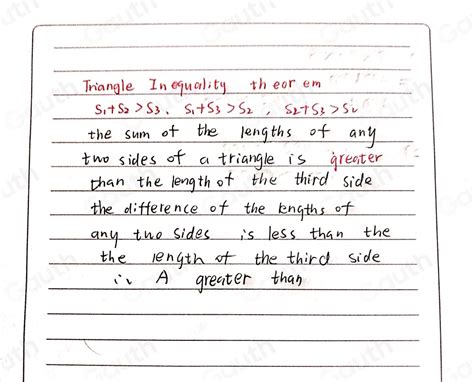 Triangle Inequality theorem
S₁+S₂ > S₃, S₁+S₃ > S₂, S₂+S₃ > S₁
the sum of the lengths of any
two sides of a triangle is greater
than the length of the third side
the difference of the lengths of
any two sides is less than the
the length of the third side
∴ A greater than